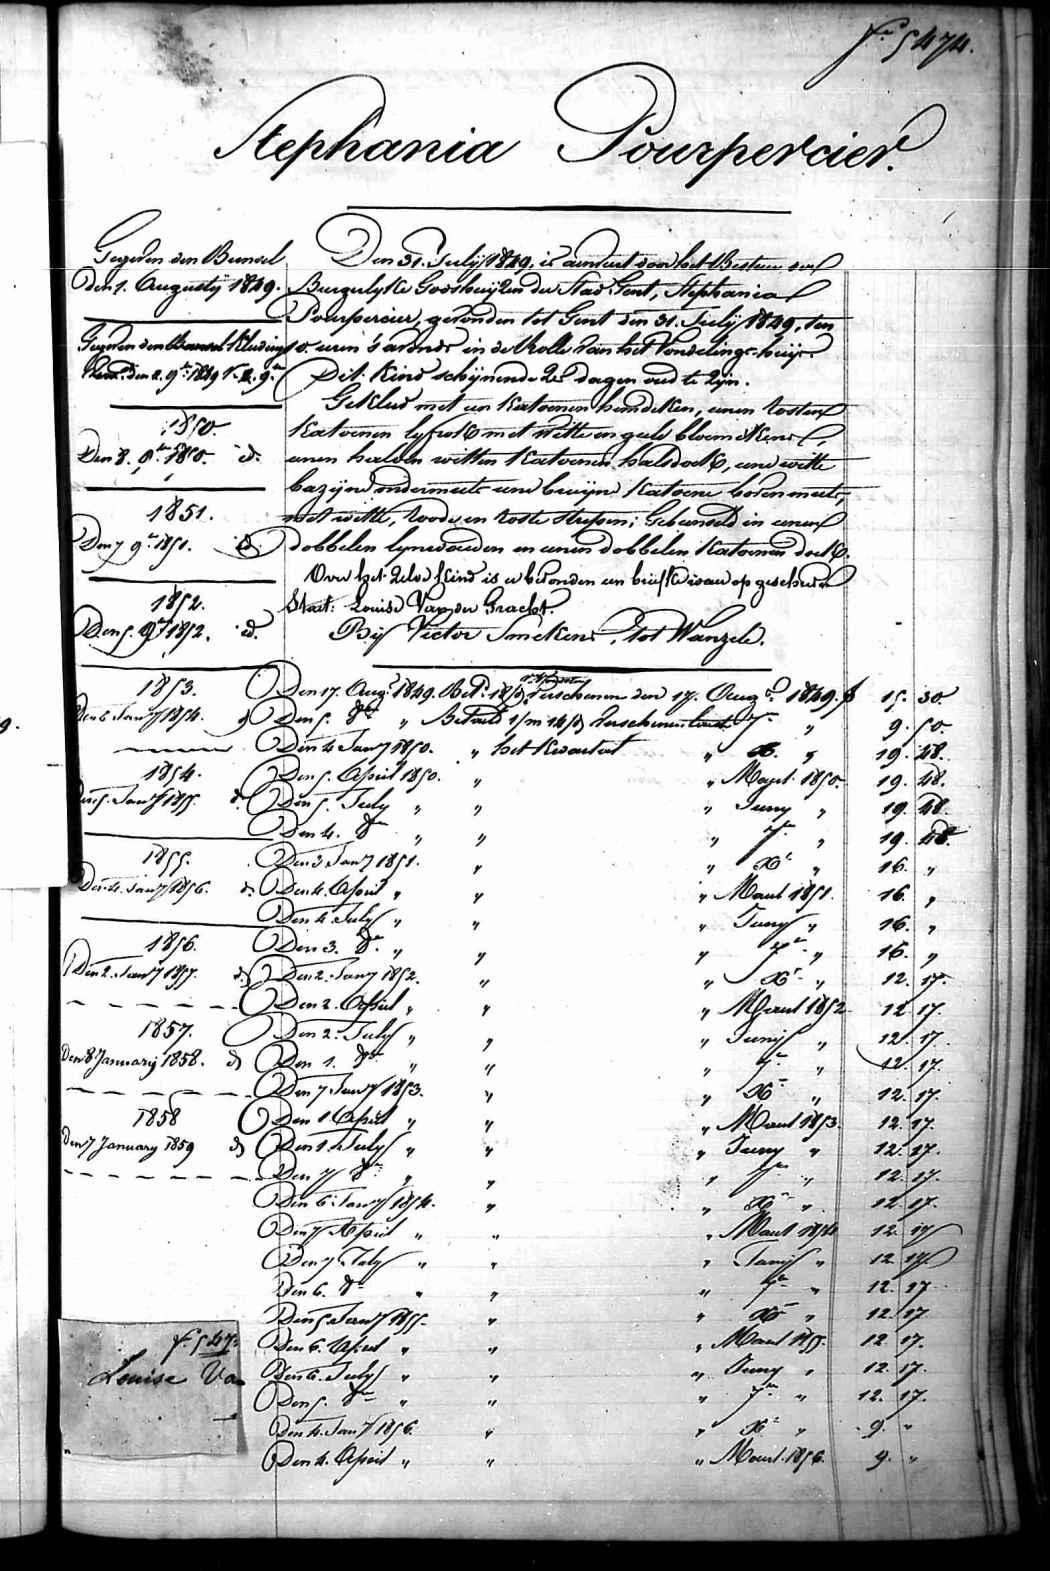 fo 5474.
Stephania Pourpercier.
Gegeven een Bunsel
den 1. Augusty 1849.
Gegeven den Kleding
den 2. 9bre 1849
1850.
Den 8. 8bre 1850. id.
1851.
Den 7 9bre 1851. id.
1852.
Den 5. 9bre 1852. id.
1853.
Den 6. Jany 1854. id
1854.
Den 5. Jany 1855. id.
1855.
Den 4. Jany 1856. id.
1856.
Den 2. Jany 1857. id.
1857.
den 8 January 1858. id
1858
den 7 January 1859 id
Den 31. July 1849, is aenveert door het Bestuer der
Burgerlyke Godshuijzen der Stad Gent, Stephania
Pourpercier, gevonden tot Gent den 31. July 1849, ten
10. uren 's avonds in de Rolle van het Vondelings-huijs
Dit Kind schijnende 2 dagen oud te zijn.
Gekleed met een Katoenen hemdeken, eenen rosten
Katoenen lyfrok met witte en geele bloemekens,
eenen halven witten Katoenen halsdoek, eene witte
bazijne ondermuts eene bruijne Katoene bovenmuts,
met witte, roode en roste strepen; Gebunseld in eenen
dobbelen lynwaeden en eenen dobbelen Katoenen doek.
Over het zelve Kind is er bevonden een briefke waer op geschreven
Staet: Louise Van der Gracht.
Bij Victor Smekens, tot Wanzele.
Den 17. Augt 1849. Bet. verschenen den 17. Augt 1849. f 15. 30.
Den 5. 8bre " Betaeld 1/m 14/d verschenen 7bre " 9. 50.
Den 4 Jany 1850. " het Kwartael " Xr. " 19. 48.
Den 5. April 1850. " " Maert 1850. 19. 48.
Den 5. July " " " Juny " 19. 48.
Den 4. 8bre " " " 7bre " 19. 48.
Den 3 Jany 1851. " " Xr " 16. "
Den 4. April " " " Maert 1851. 16. "
Den 4 July " " " Juny " 16. "
Den 3. 8bre " " " 7bre " 16. "
Den 2. Jany 1852. " " Xr " 12. 17.
Den 2. April " " " Maert 1852 12. 17.
Den 2. July " " " Junij " 12. 17.
Den 1. 8bre " " " 7bre " 12. 17.
Den 7 Jany 1853. " " Xr " 12. 17.
Den 1 April " " " Maert 1853. 12. 17.
Den 1. July " " " Juny " 12. 17.
Den 7 8bre " " " 7bre " 12. 17.
Den 6. Jany 1854. " " Xr " 12. 17.
Den 7 April " " " Maert 1854 12. 17
Den 7 July " " " Junij " 12. 17
Den 6. 8bre " " " 7bre " 12. 17
Den 5 Jany 1855. " " Xr " 12. 17
Den 6. April " " " Maert 1855. 12. 17.
Den 6. July " " " Juny " 12. 17.
Den 5. 8bre " " " 7bre " 12. 17.
Den 4. Jany 1856. " " Xr " 9. "
Den 4. April " " " Maert 1856. 9. "
fo 547
Louise Van